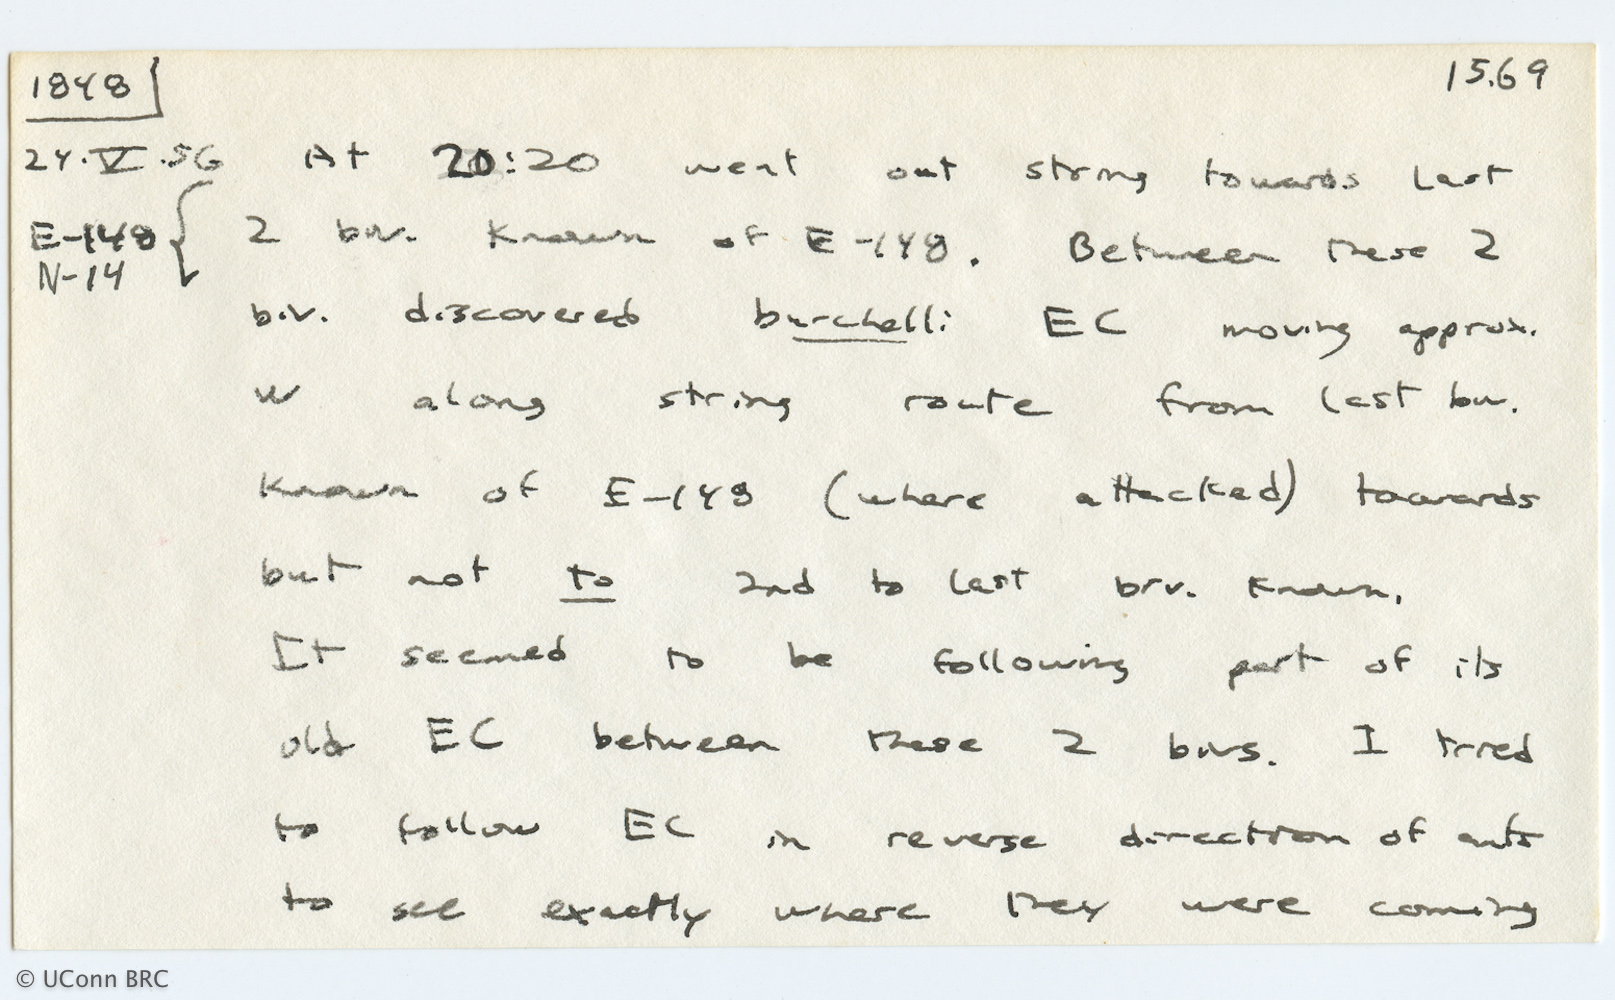 1848 15.69
24.V.56 At 20:20 went out string towards last
E-148 2 biv. known of E-148. Between these 2
N-14
biv. discovered burchelli EC moving approx.
W along string route from last biv.
known of E-148 (where attacked) towards
but not to 2nd to last biv. known.
It seemed to be following part of its
old EC between these 2 bivs. I tried
to follow EC in reverse direction of ants
to see exactly where they were coming
© UConn BRC